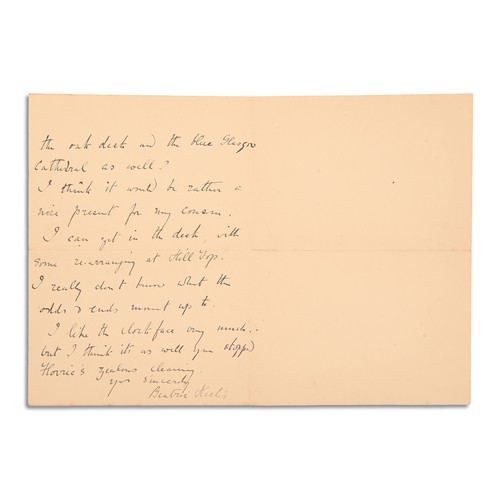 the oak desk and the blue Glasgow
Cathedral as well?
I think it would be rather a
nice present for my cousin.
I can get in the desk, with
some re-arranging at Hill Top.
I really don't know what the
odds & ends mount up to.
I like the clock face very much.
but I think its as well you stopped
zealous cleaning.
yrs sincerely
Beatrix Heelis